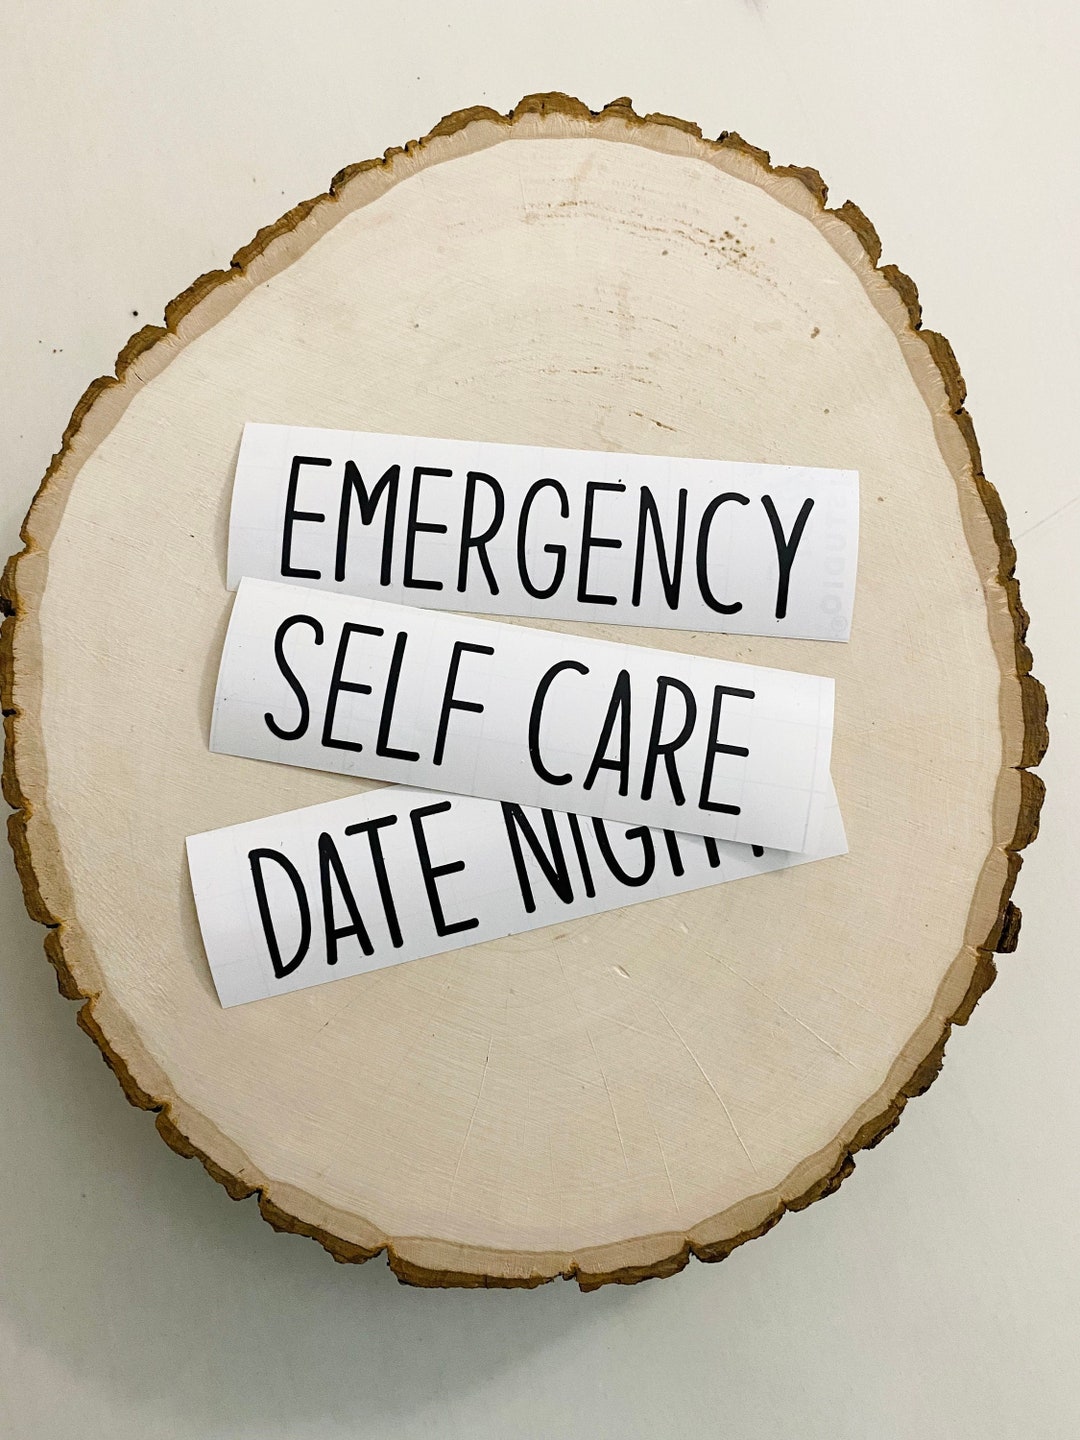 EMERGENCY
SELF CARE
DATE NIGHT